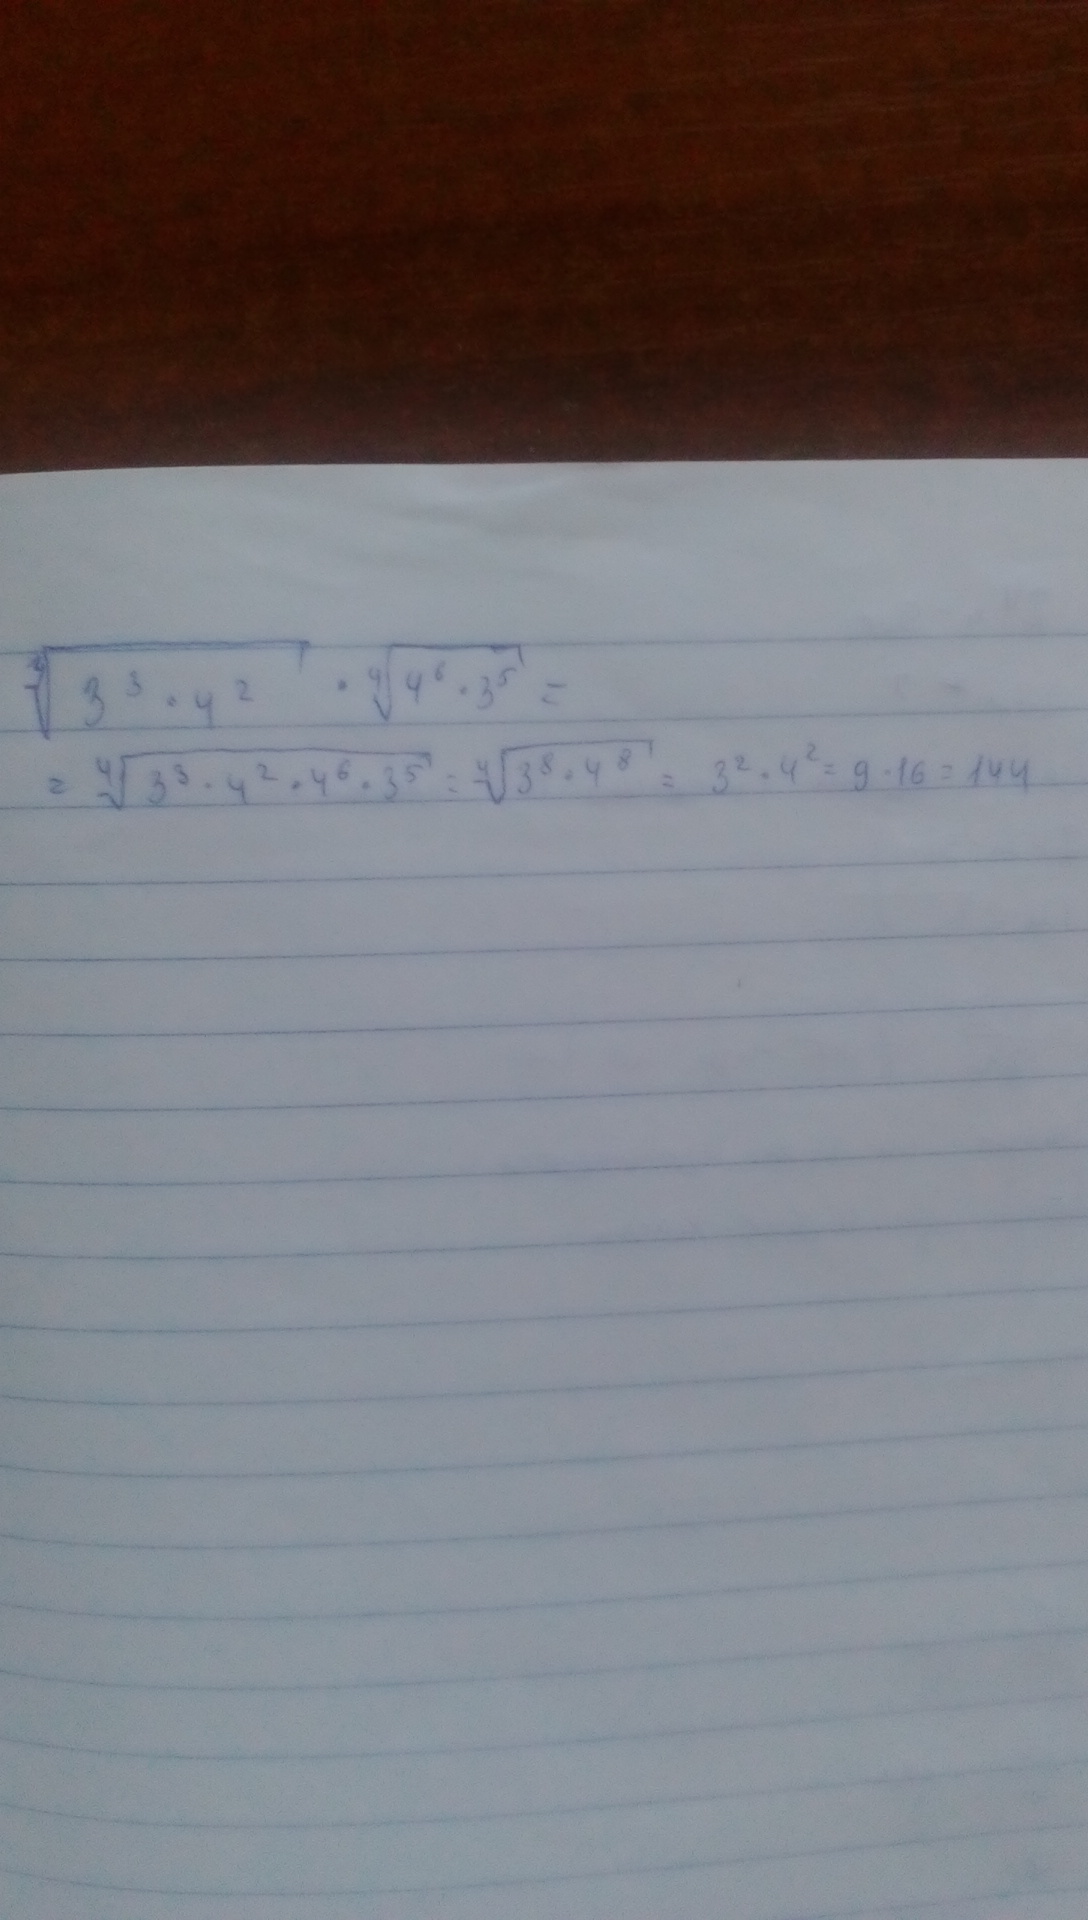 ∜(3³ · 4²) · ∜(4⁶ · 3⁵) =
= ∜(3³ · 4² · 4⁶ · 3⁵) = ∜(3⁸ · 4⁸) = 3² · 4² = 9 · 16 = 144